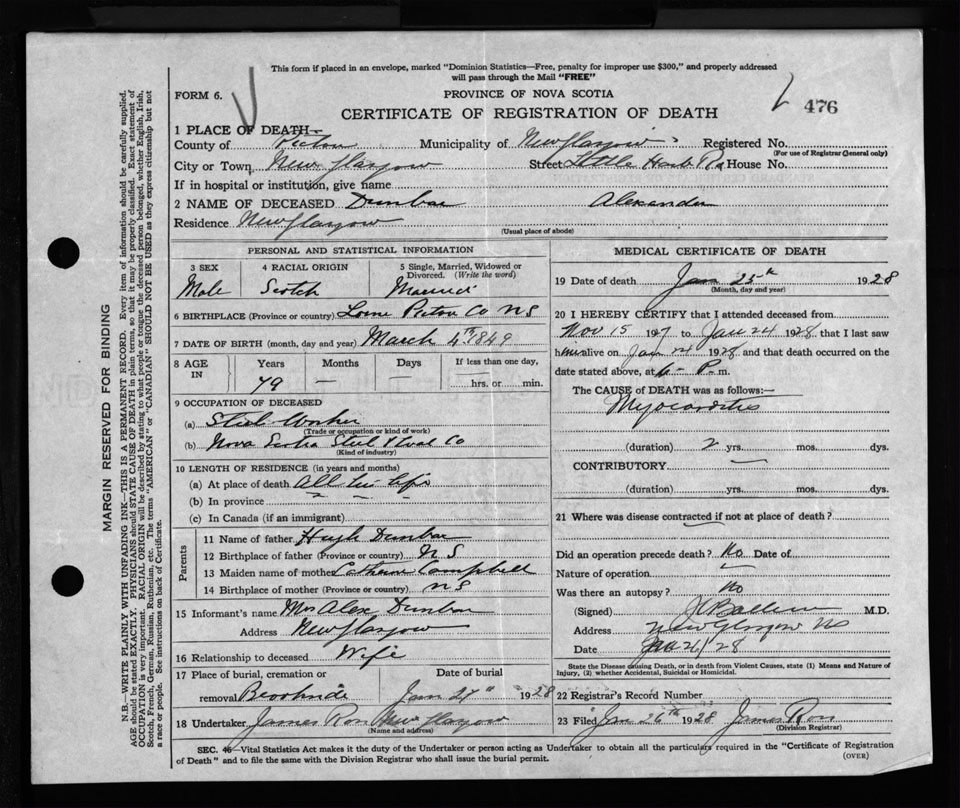 This form if placed in an envelope, marked "Dominion Statistics—Free, penalty for improper use $300," and properly addressed
will pass through the Mail "FREE"
FORM 6.
PROVINCE OF NOVA SCOTIA
CERTIFICATE OF REGISTRATION OF DEATH
476
1 PLACE OF DEATH—
County of Pictou Municipality of New Glasgow Registered No.
(For use of Registrar General only)
City or Town New Glasgow Street Little Harb Rd House No.
If in hospital or institution, give name
2 NAME OF DECEASED Dunbar Alexander
Residence New Glasgow
(Usual place of abode)
PERSONAL AND STATISTICAL INFORMATION
3 SEX 4 RACIAL ORIGIN 5 Single, Married, Widowed or Divorced. (Write the word)
Male Scotch Married
6 BIRTHPLACE (Province or country) Lorne Pictou Co NS
7 DATE OF BIRTH (month, day and year) March 4th 1849
8 AGE IN Years Months Days If less than one day,
79 — hrs. or min.
9 OCCUPATION OF DECEASED
(a) Steel Worker
(Trade or occupation or kind of work)
(b) Nova Scotia Steel & Coal Co
(Kind of industry)
10 LENGTH OF RESIDENCE (in years and months)
(a) At place of death All his life
(b) In province
(c) In Canada (if an immigrant)
Parents
11 Name of father Hugh Dunbar
12 Birthplace of father (Province or country) N S
13 Maiden name of mother Catherine Campbell
14 Birthplace of mother (Province or country) NS
15 Informant's name Mrs Alex Dunbar
Address New Glasgow
16 Relationship to deceased Wife
17 Place of burial, cremation or Date of burial
removal Jan 1928
18 Undertaker James Ross New Glasgow
(Name and address)
MEDICAL CERTIFICATE OF DEATH
19 Date of death Jan 25th 1928
(Month, day and year)
20 I HEREBY CERTIFY that I attended deceased from
Nov 15 1927 to Jan 24 1928, that I last saw
him alive on Jan 24 1928, and that death occurred on the
date stated above, at P. m.
The CAUSE of DEATH was as follows:—
Myocarditis
(duration) 2 yrs. mos. dys.
CONTRIBUTORY
(duration) yrs. mos. dys.
21 Where was disease contracted if not at place of death?
Did an operation precede death? No Date of
Nature of operation
Was there an autopsy? No
(Signed) M.D.
Address New Glasgow NS
Date Jan 26/28
State the Disease causing Death, or in death from Violent Causes, state (1) Means and Nature of
Injury, (2) whether Accidental, Suicidal or Homicidal.
22 Registrar's Record Number
23 Filed Jan 26th 1928 James Ross
(Division Registrar)
SEC. 46—Vital Statistics Act makes it the duty of the Undertaker or person acting as Undertaker to obtain all the particulars required in the "Certificate of Registration
of Death" and to file the same with the Division Registrar who shall issue the burial permit.
(OVER)
MARGIN RESERVED FOR BINDING
N.B.—WRITE PLAINLY WITH UNFADING INK—THIS IS A PERMANENT RECORD. Every item of information should be carefully supplied.
AGE should be stated EXACTLY. PHYSICIANS should STATE CAUSE OF DEATH in plain terms, so that it may be properly classified. Exact statement of
OCCUPATION is very important. RACIAL ORIGIN will be described by stating to what people or tongue the deceased person belonged, whether English, Irish,
Scotch, French, German, Russian, Ruthenian, etc. The terms "AMERICAN" or "CANADIAN" SHOULD NOT BE USED as they express citizenship but not
a race or people. See instructions on back of Certificate.